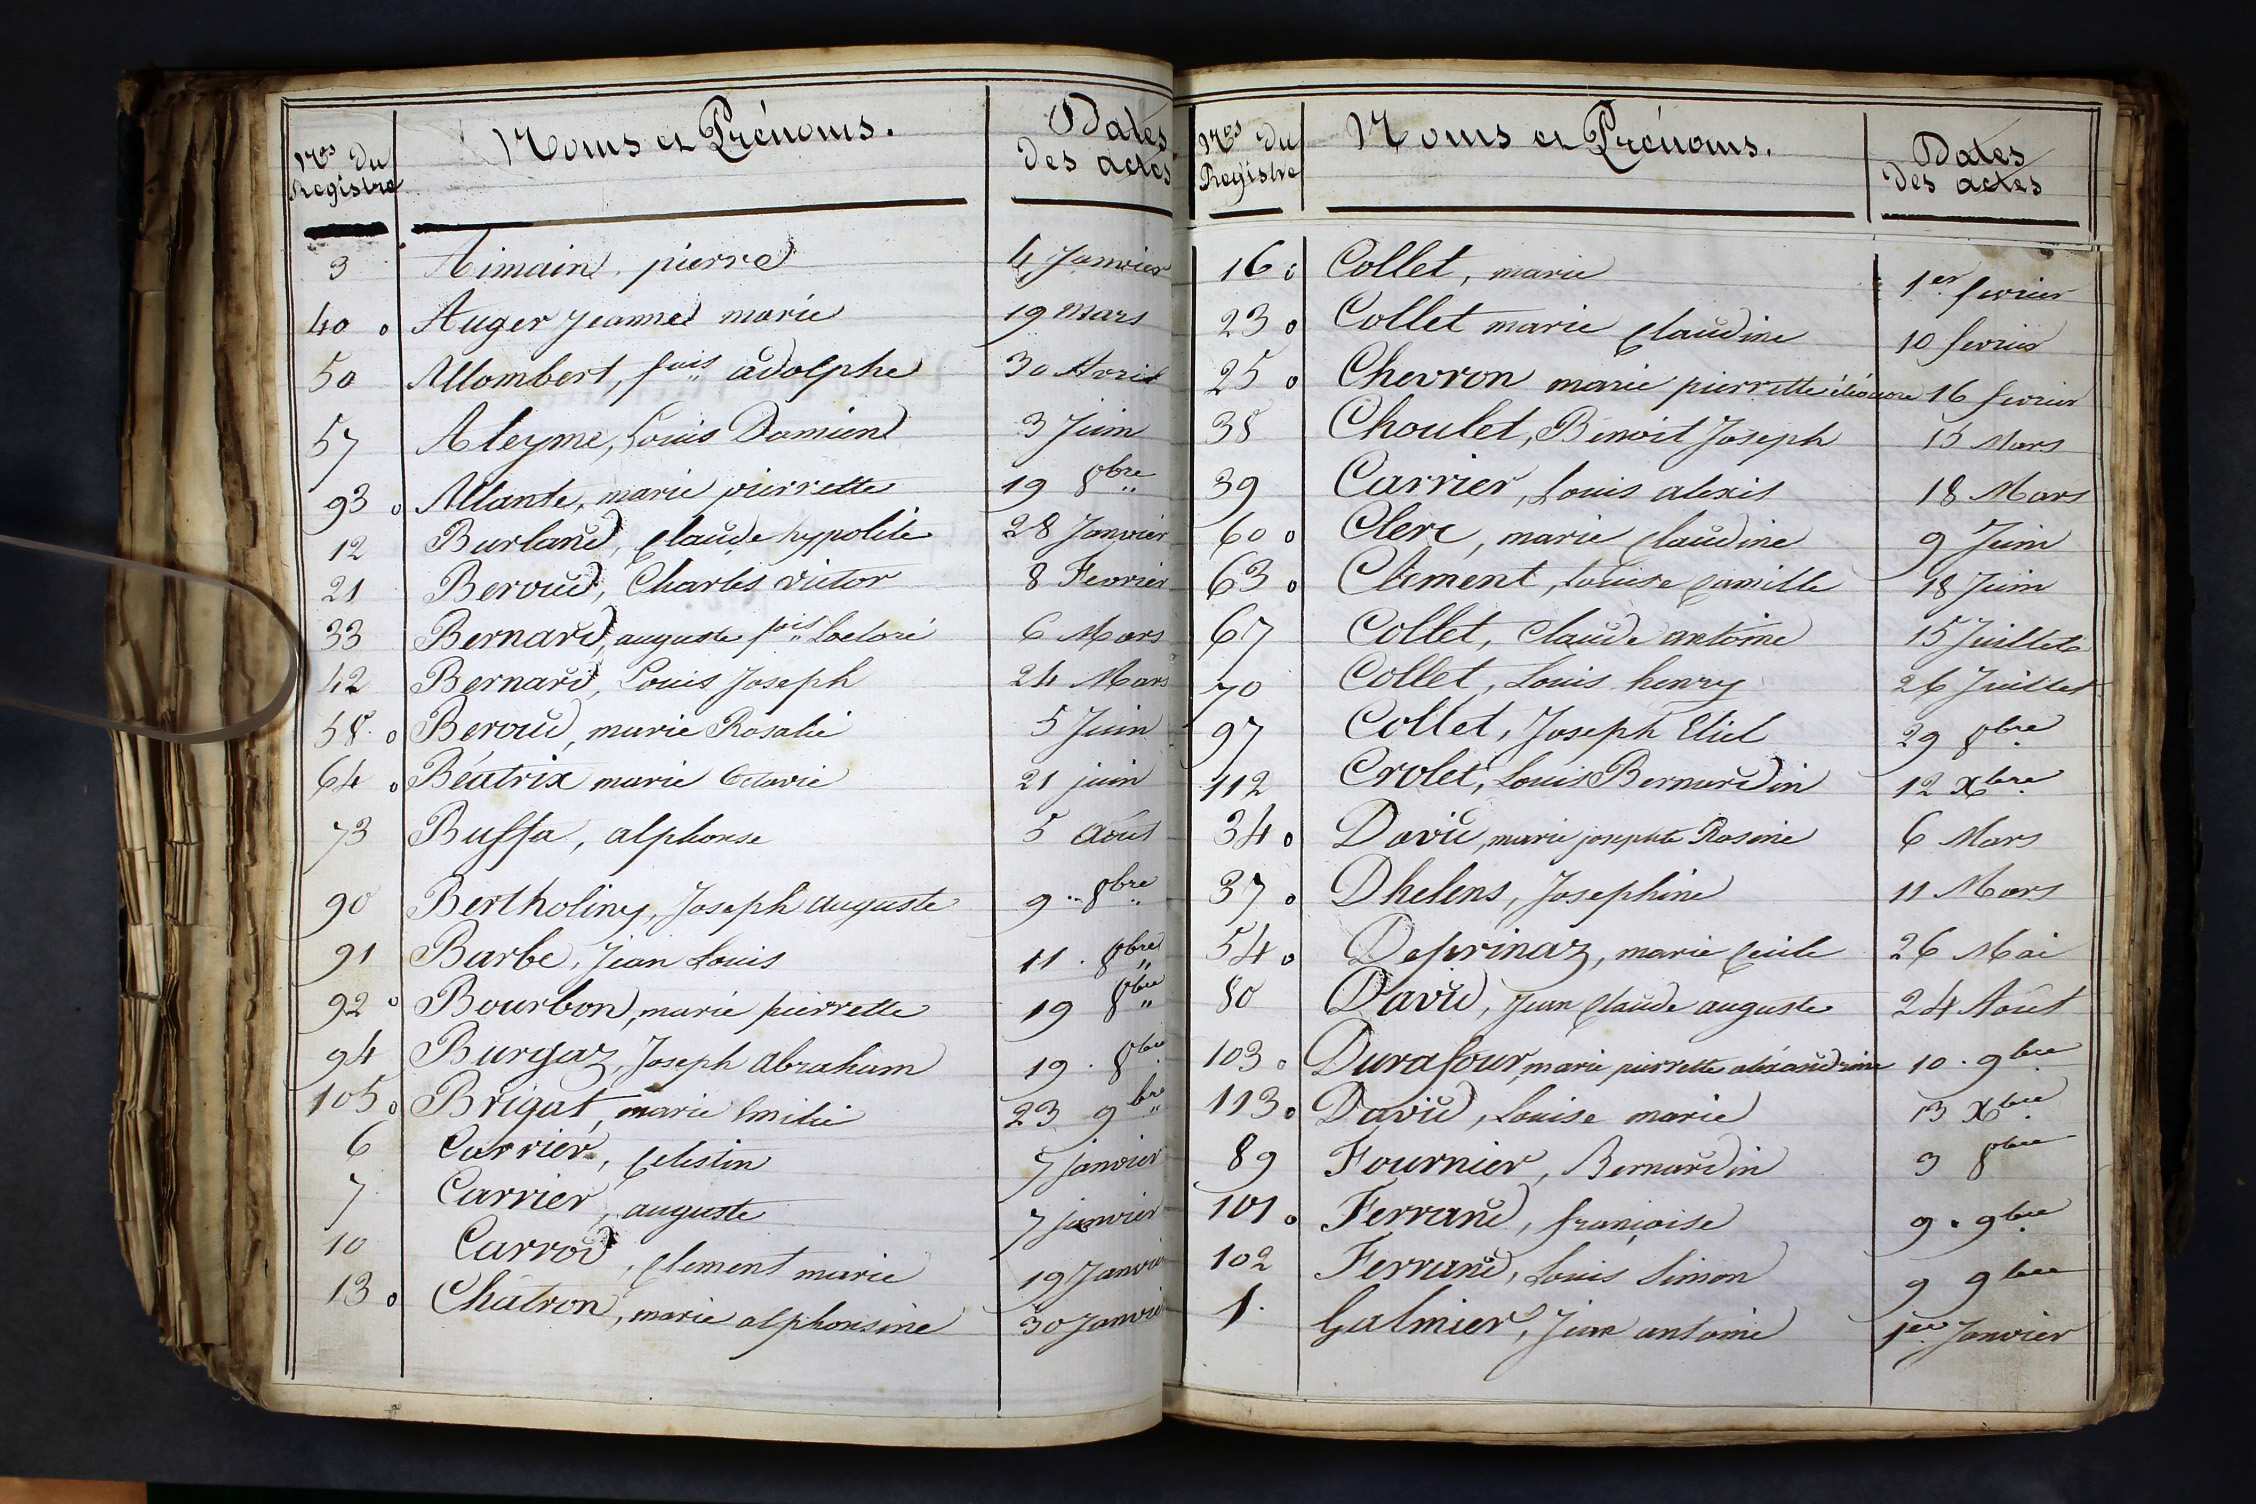 Nos du Registre Noms et Prénoms. Dates des actes
3 Aimain, pierre 4 Janvier
40 o Auger jeanne marie 19 Mars
50 Allombert, fois adolphe 30 Avril
57 Aleyme, Louis Damien 3 Juin
93 o Allante, marie pierrette 19 8bre
12 Burland, Claude hypolite 28 Janvier
21 Beroud, Charles victor 8 Fevrier
33 Bernard, auguste fois 6 Mars
42 Bernard, Louis Joseph 24 Mars
58 o Beroud, marie Rosalie 5 Juin
64 o Béatrix marie Octavie 21 juin
73 Buffa, alphonse 5 Août
90 Bertholiny, Joseph auguste 9 8bre
91 Barbe, Jean Louis 11 8bre
92 o Bourbon, marie pierrette 19 8bre
94 Burgaz, Joseph Abraham 19 8bre
105 o Brigat, marie Emilie 23 9bre
6 Carrier, Celestin 7 janvier
7 Carrier, auguste 7 janvier
10 Carrod, Clement marie 19 Janvier
13 o Chatron, marie alphonsine 30 Janvier
Nos du Registre Noms et Prénoms. Dates des actes
16 o Collet, marie 1er fevrier
23 o Collet marie Claudine 10 fevrier
25 o Chevron marie pierrette éléonore 16 fevrier
38 Choulet, Benoit Joseph 15 Mars
39 Carrier, Louis alexis 18 Mars
60 o Clerc, marie Claudine 9 Juin
63 o Clement, Louise Camille 18 Juin
67 Collet, Claude antoine 15 Juillet
70 Collet, Louis henry 26 Juillet
97 Collet, Joseph Eliel 29 8bre
112 Crolet, Louis Bernardin 12 Xbre
34 o David, marie josephte Rosine 6 Mars
37 o Dhelens, Josephine 11 Mars
54 o Deprinaz, marie Cecile 26 Mai
80 David, Jean Claude auguste 24 Août
103 o Durafour, marie pierrette aléxandrine 10 9bre
113 o David, Louise marie 13 Xbre
89 Fournier, Bernardin 3 8bre
101 o Ferrand, françoise 9 9bre
102 Ferrand, Louis Simon 9 9bre
1. Galmier, Jean antoine 1er Janvier